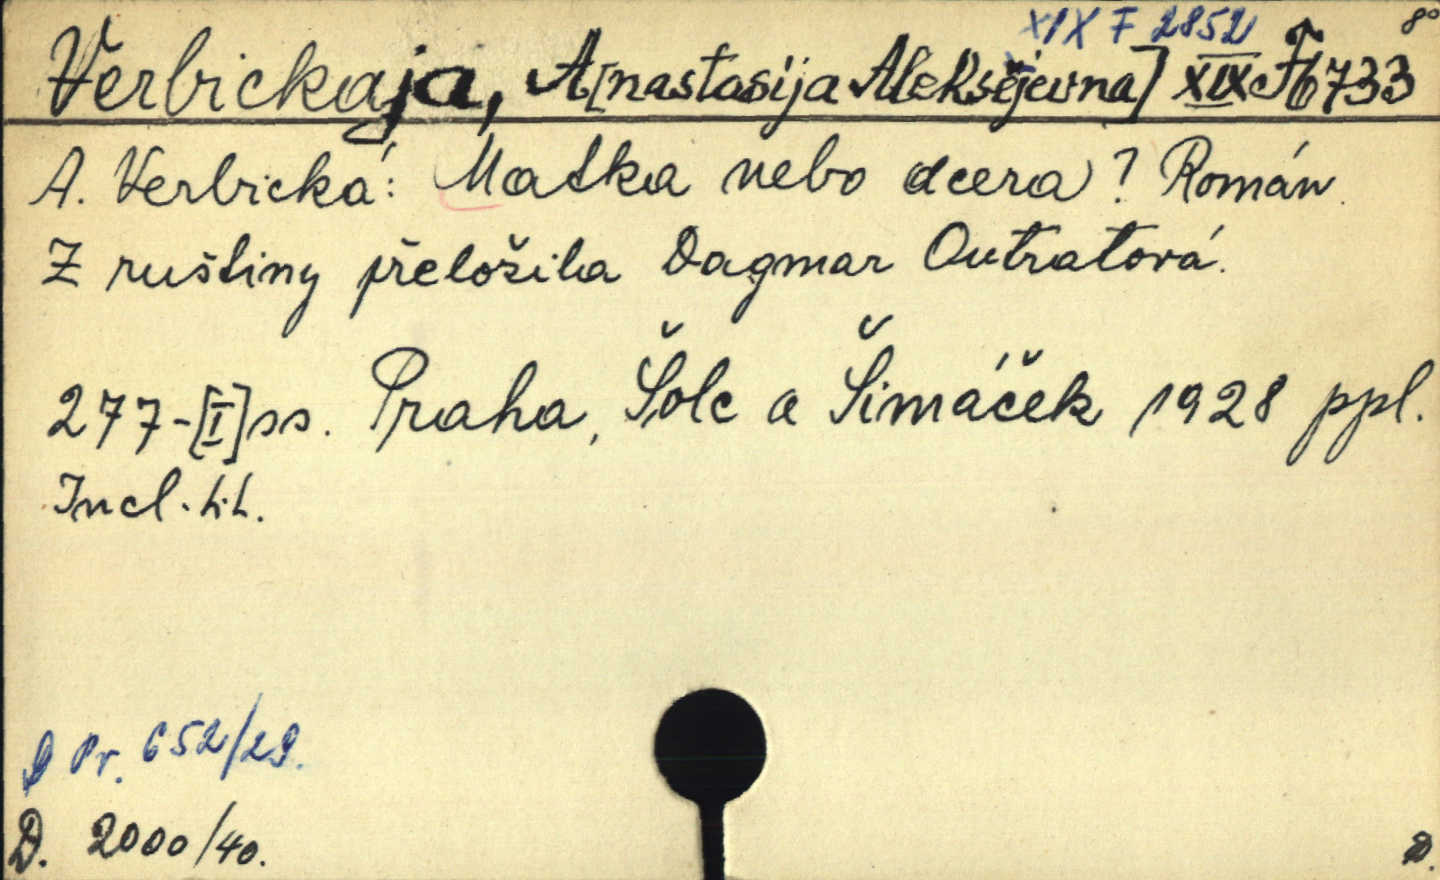 XIX F 2852 8°
Verbickaja, A[nastasija Aleksějevna] XIX F 6733
A. Verbická: Matka nebo dcera? Román.
Z ruštiny přeložila Dagmar Outratová.
277-[I] ss. Praha, Šolc a Šimáček 1928 ppl.
Incl. t.t.
D Pr. 652/29.
D. 2000/40.
D.